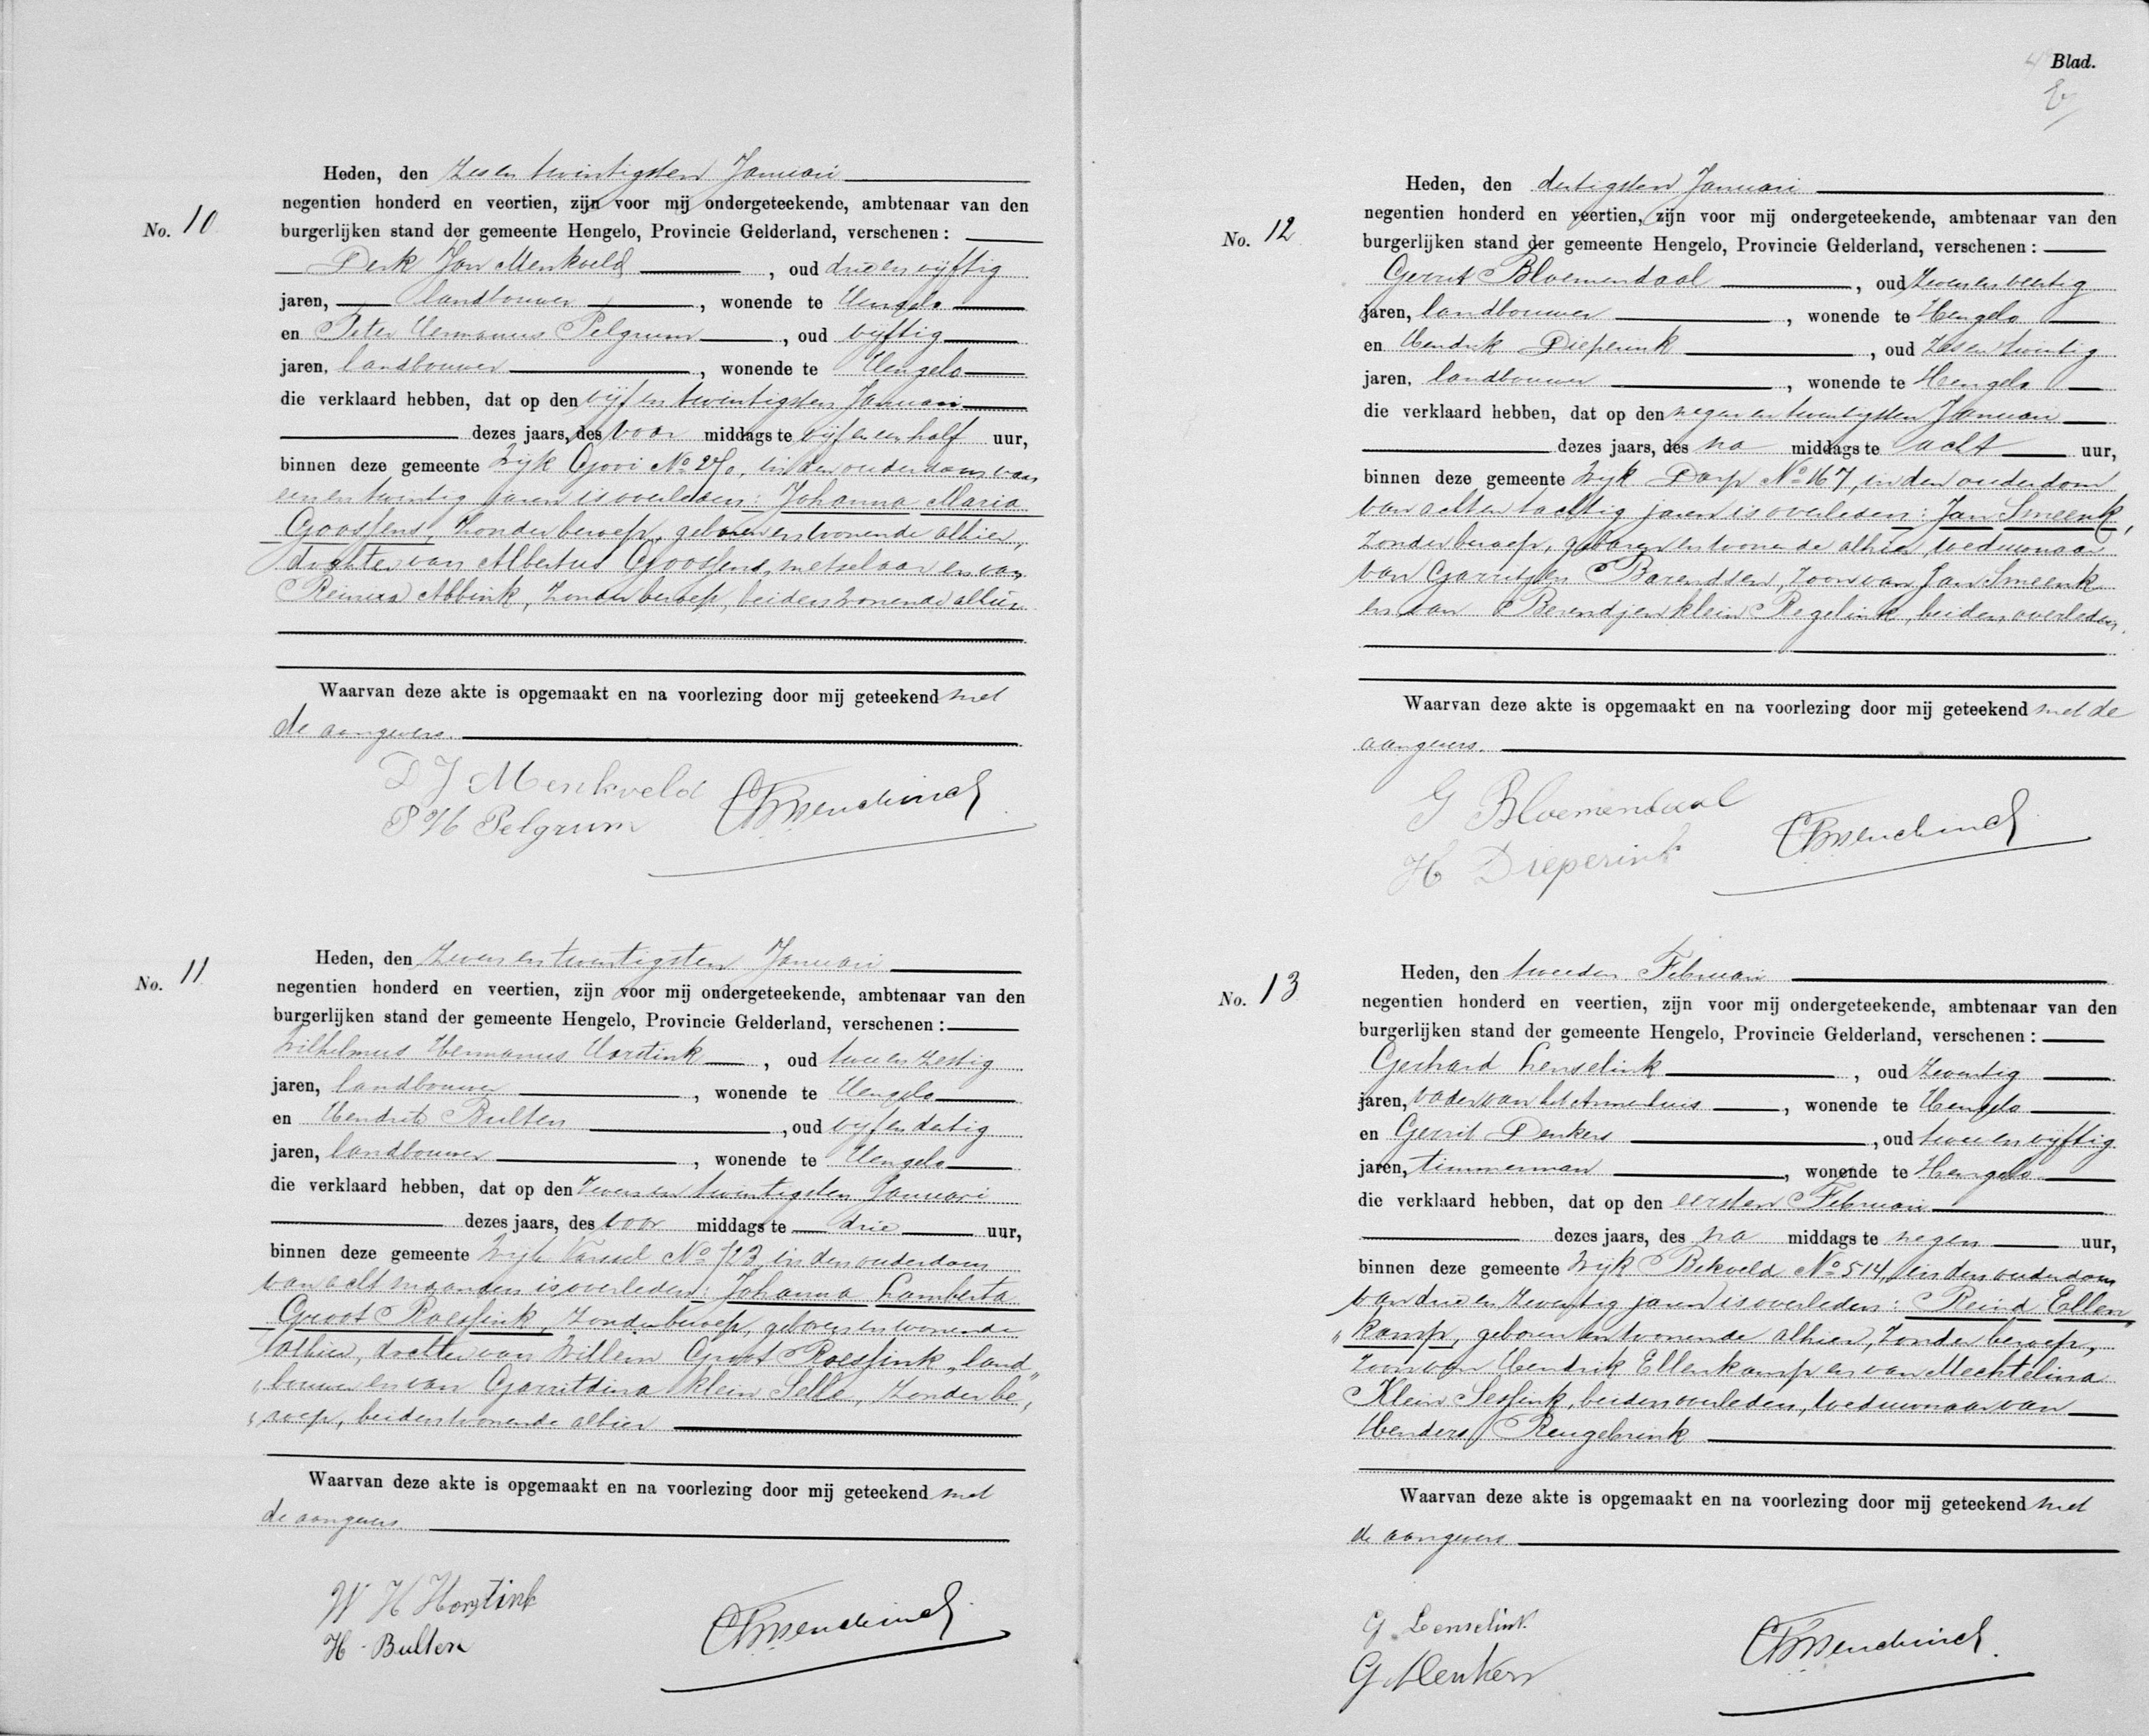 Blad.
No. 10
Heden, den zes en twintigsten Januari
negentien honderd en veertien, zijn voor mij ondergeteekende, ambtenaar van den
burgerlijken stand der gemeente Hengelo, Provincie Gelderland, verschenen:
Derk Jan Menkveld, oud drie en vijftig
jaren, landbouwer, wonende te Hengelo
en Peter Hermanus Pelgrum, oud vijftig
jaren, landbouwer, wonende te Hengelo
die verklaard hebben, dat op den vijf en twintigsten Januari
dezes jaars, des voor middags te vijf en een half uur,
binnen deze gemeente Wijk Gooi No 270, in den ouderdom van
een en twintig jaren is overleden: Johanna Maria
Goossens, zonder beroep, geboren en wonende alhier,
dochter van Albertus Goossens, metselaar en van
Reinera Abbink, zonder beroep, beiden wonende alhier
Waarvan deze akte is opgemaakt en na voorlezing door mij geteekend met
de aangevers.
D J Menkveld
P H Pelgrum
No. 11
Heden, den zeven en twintigsten Januari
negentien honderd en veertien, zijn voor mij ondergeteekende, ambtenaar van den
burgerlijken stand der gemeente Hengelo, Provincie Gelderland, verschenen:
Wilhelmus Hermanus Horstink, oud twee en zestig
jaren, landbouwer, wonende te Hengelo
en Hendrik Bulten, oud vijf en dertig
jaren, landbouwer, wonende te Hengelo
die verklaard hebben, dat op den zeven en twintigsten Januari
dezes jaars, des voor middags te drie uur,
binnen deze gemeente Wijk Varssel No 723, in den ouderdom
van acht maanden is overleden: Johanna Lamberta
Groot Roessink, zonder beroep, geboren en wonende
alhier, dochter van Willem Groot Roessink, land„
„bouwer en van Garritdina klein Selle, zonder be„
„roep, beiden wonende alhier
Waarvan deze akte is opgemaakt en na voorlezing door mij geteekend met
de aangevers.
W H Horstink
H. Bulten
No. 12
Heden, den dertigsten Januari
negentien honderd en veertien, zijn voor mij ondergeteekende, ambtenaar van den
burgerlijken stand der gemeente Hengelo, Provincie Gelderland, verschenen:
Gerrit Bloemendaal, oud zeven en veertig
jaren, landbouwer, wonende te Hengelo
en Hendrik Dieperink, oud zes en twintig
jaren, landbouwer, wonende te Hengelo
die verklaard hebben, dat op den negen en twintigsten Januari
dezes jaars, des na middags te acht uur,
binnen deze gemeente Wijk Dorp No 167, in den ouderdom
van acht en tachtig jaren is overleden: Jan Smeenk,
zonder beroep, geboren en wonende alhier, weduwnaar
van Garritjen Barendsen, zoon van Jan Smeenk
en van Berendjen klein Regelink, beiden overleden.
Waarvan deze akte is opgemaakt en na voorlezing door mij geteekend met de
aangevers.
G Bloemendaal
H Dieperink
No. 13
Heden, den tweeden Februari
negentien honderd en veertien, zijn voor mij ondergeteekende, ambtenaar van den
burgerlijken stand der gemeente Hengelo, Provincie Gelderland, verschenen:
Gerhard Lenselink, oud zeventig
jaren, vader van het Armenhuis, wonende te Hengelo
en Gerrit Denkers, oud twee en vijftig
jaren, timmerman, wonende te Hengelo
die verklaard hebben, dat op den eersten Februari
dezes jaars, des na middags te negen uur,
binnen deze gemeente Wijk Bekveld No 514, in den ouderdom
van drie en zeventig jaren is overleden: Reind Ellen„
„kamp, geboren en wonende alhier, zonder beroep,
zoon van Hendrik Ellenkamp en van Mechtelina
Klein Sessink, beiden overleden, weduwnaar van
Hendera Reugebrink
Waarvan deze akte is opgemaakt en na voorlezing door mij geteekend met
de aangevers
G. Lenselink
G Denkers